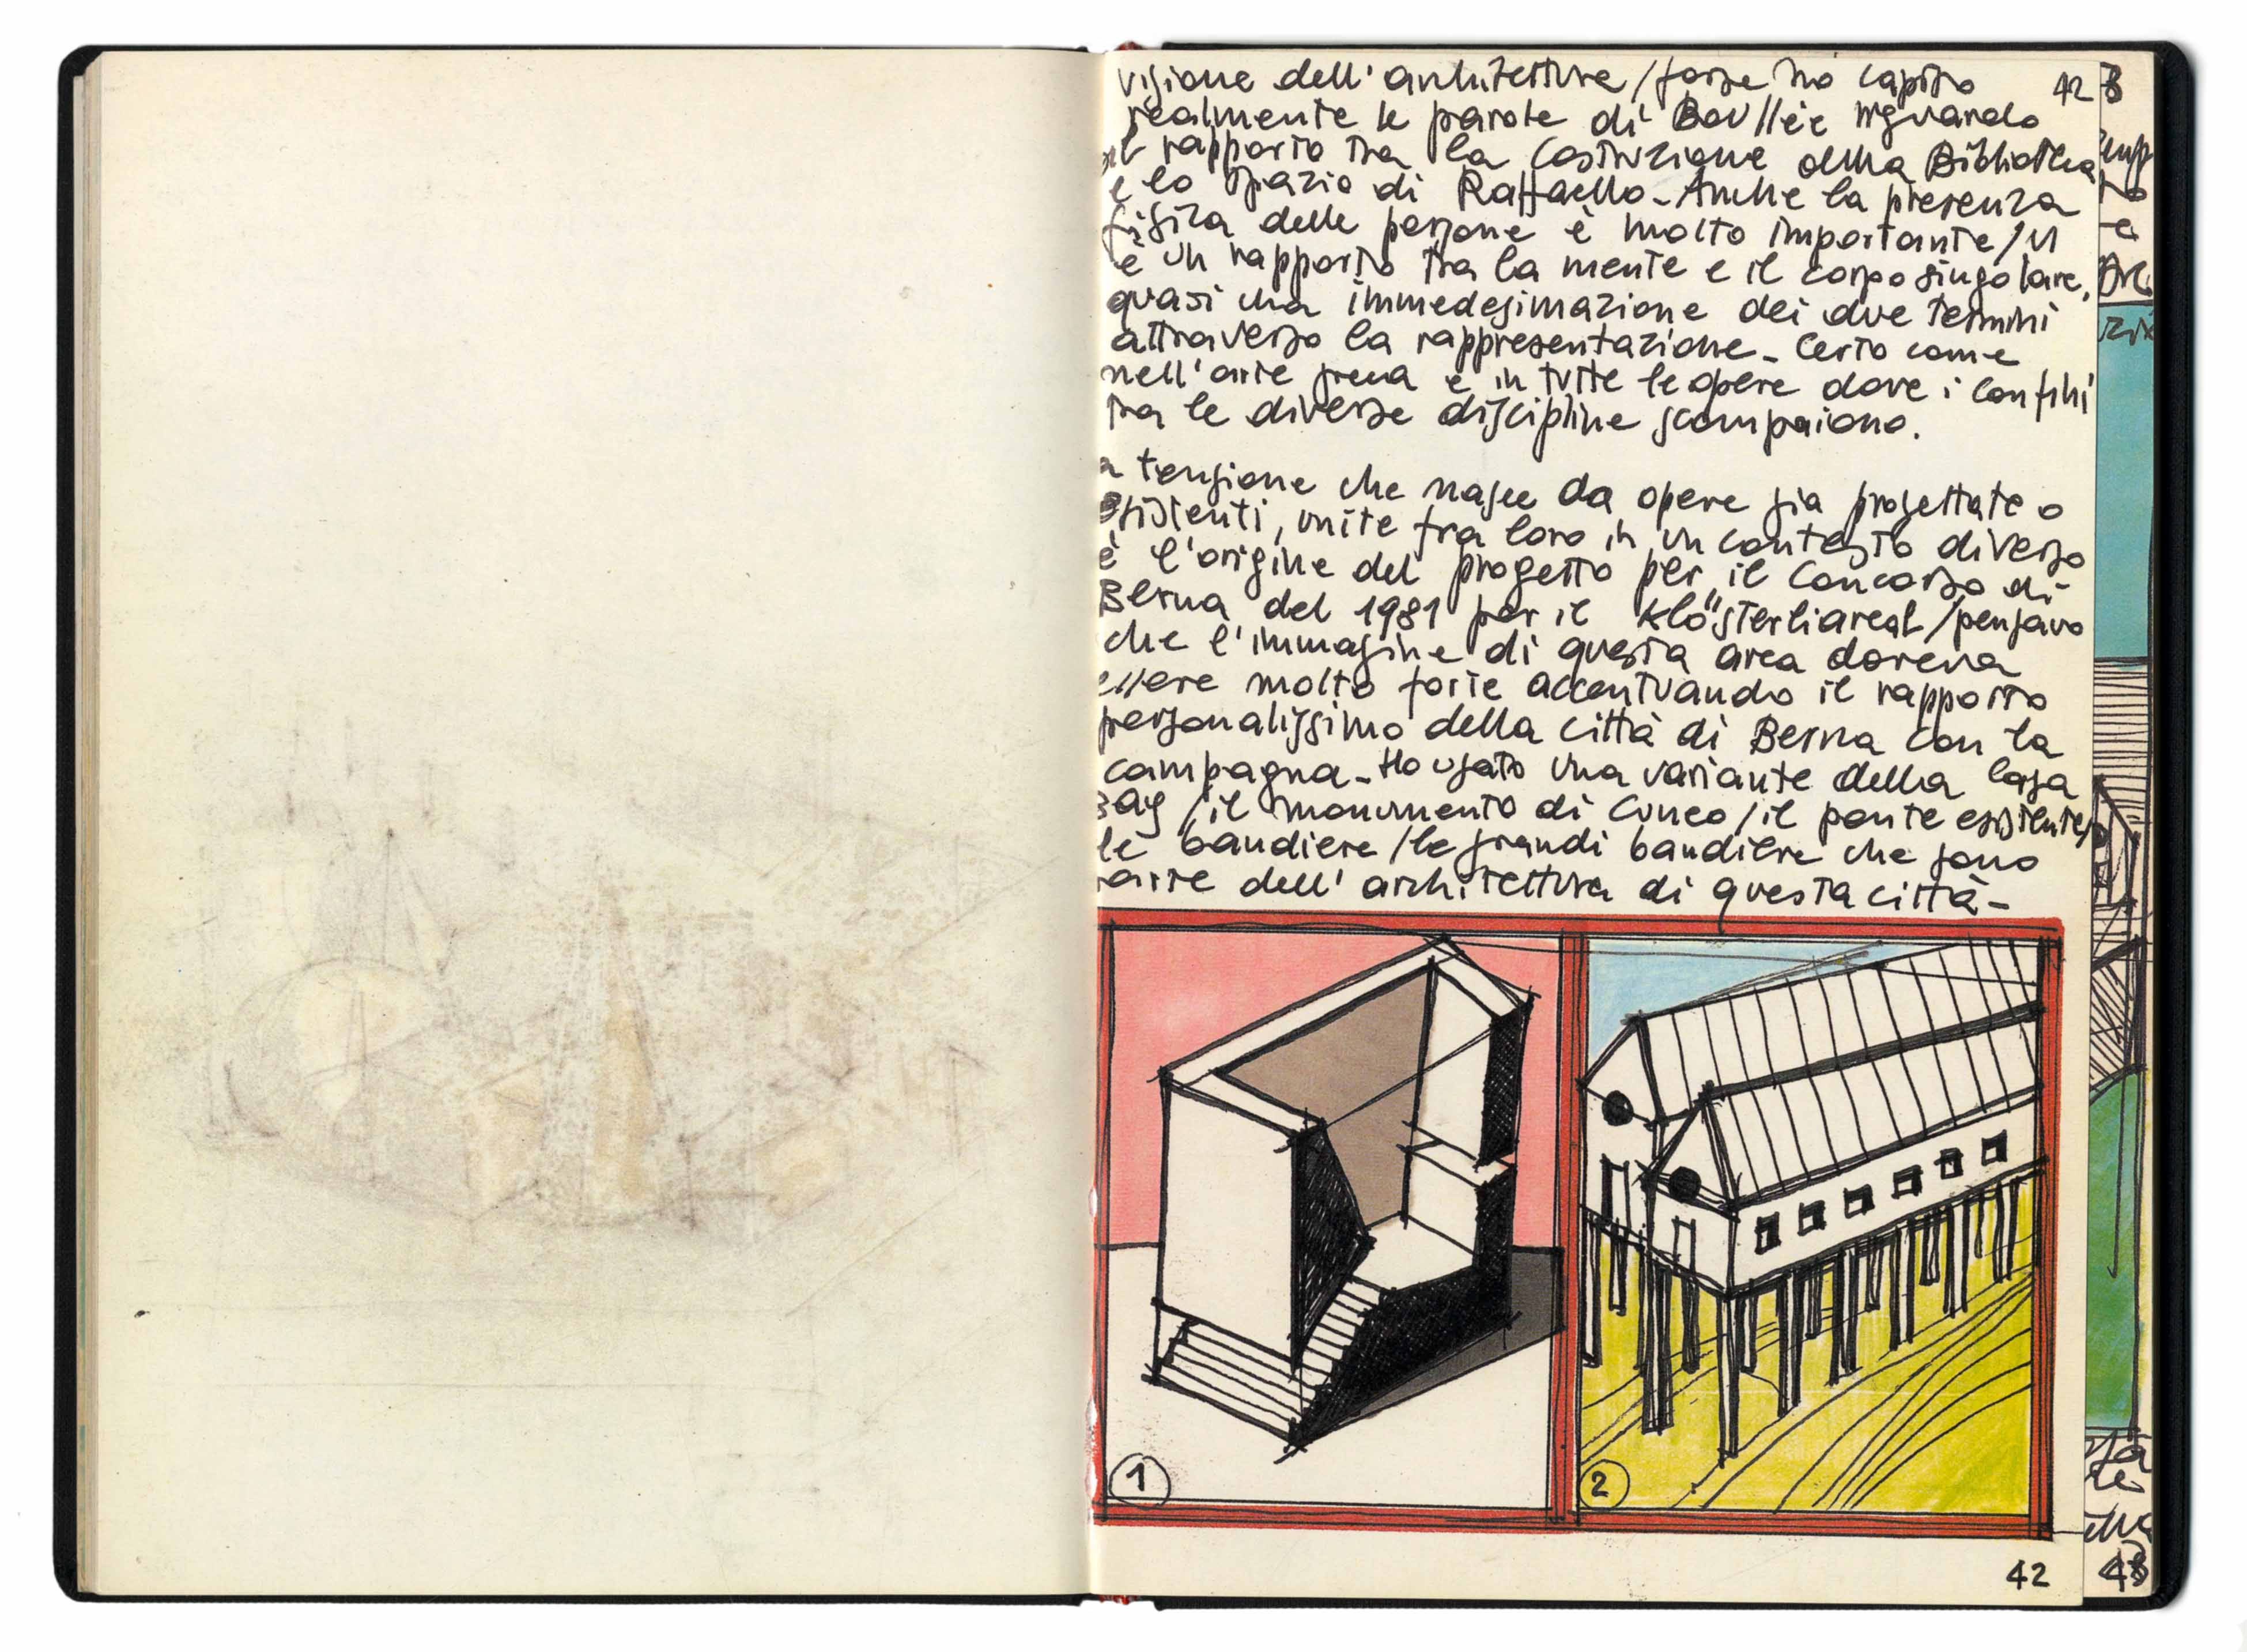 visione dell'architettura/forse ho capito 42
realmente le parole di Boullée riguardo
il rapporto tra la costruzione della Biblioteca
e lo spazio di Raffaello - Anche la presenza
fisica delle persone è molto importante/vi
è un rapporto tra la mente e il corpo singolare,
quasi una immedesimazione dei due termini
attraverso la rappresentazione - Certo come
nell'arte greca e in tutte le opere dove i confini
tra le diverse discipline scompaiono.
a tensione che nasce da opere già progettate o
esistenti, unite fra loro in un contesto diverso
è l'origine del progetto per il Concorso di
Berna del 1981 per il Klösterliareal/pensavo
che l'immagine di questa area doveva
essere molto forte accentuando il rapporto
personalissimo della città di Berna con la
campagna - Ho usato una variante della Casa
Bay/il monumento di Cuneo/il ponte esistente/
le bandiere/le grandi bandiere che sono
parte dell'architettura di questa città -
1
2
42
43